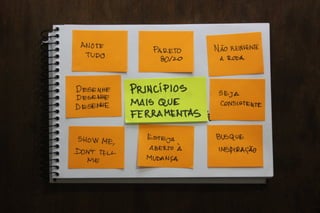 ANOTE
TUDO
PARETO
80/20
NÃO REINVENTE
A RODA
DESENHE
DESENHE
DESENHE
PRINCÍPIOS
MAIS QUE
FERRAMENTAS
SEJA
CONSISTENTE
SHOW ME,
DONT TELL
ME
ESTEJA
ABERTO À
MUDANÇA
BUSQUE
INSPIRAÇÃO